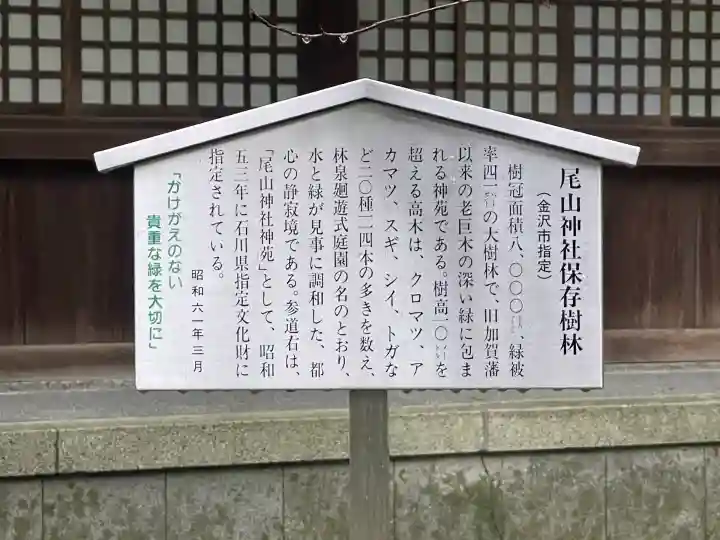 尾山神社保存樹林
(金沢市指定)
樹冠面積八、〇〇〇㎡、緑被
率四一%の大樹林で、旧加賀藩
以来の老巨木の深い緑に包ま
れる神苑である。樹高一〇mを
超える高木は、クロマツ、ア
カマツ、スギ、シイ、トガな
ど二〇種二一四本の多きを数え、
林泉廻遊式庭園の名のとおり、
水と緑が見事に調和した、都
心の静寂境である。参道右は、
「尾山神社神苑」として、昭和
五三年に石川県指定文化財に
指定されている。
昭和六一年三月
「かけがえのない
貴重な緑を大切に」